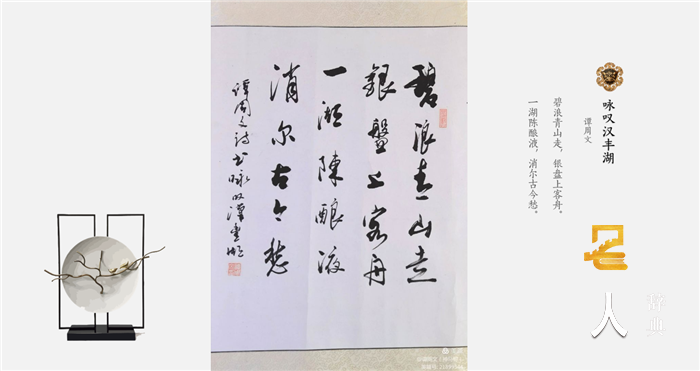 咏叹汉丰湖
谭周文
碧浪青山走，银盘上客舟。
一湖陈酿液，消尔古今愁。
碧浪青山走
銀盤上客舟
一湖陳酿液
消尔古今愁
谭周文诗书咏叹漢豐湖
人